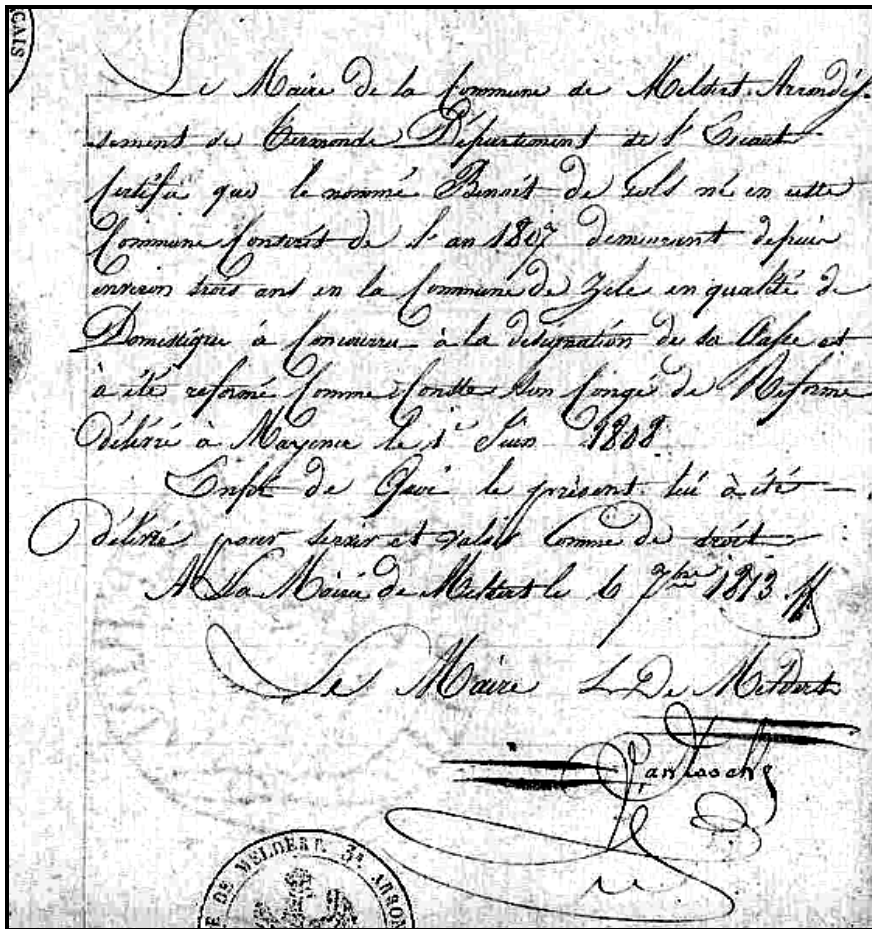 ÇAIS
Le Maire de la Commune de Meldert Arrondis-
sement de Termonde Département de l'Escaut
Certifie que le nommé Benoit de Gols né en cette
Commune Conscrit de l'an 1807 demeurant depuis
environ trois ans en la Commune de Zele en qualité de
Domestique à Concourru à la designation de sa Classe et
à été reformé Comme Conste son Congé de Reforme
délivré à Mayence le 1r Juin 1808
En foi de Quoi le présent lui à été
délivré pour servir et valoir Comme de droit
A La Mairie de Meldert le 6 7bre 1813.
Le Maire De Meldert
E DE MELDERT. 3e ARRON